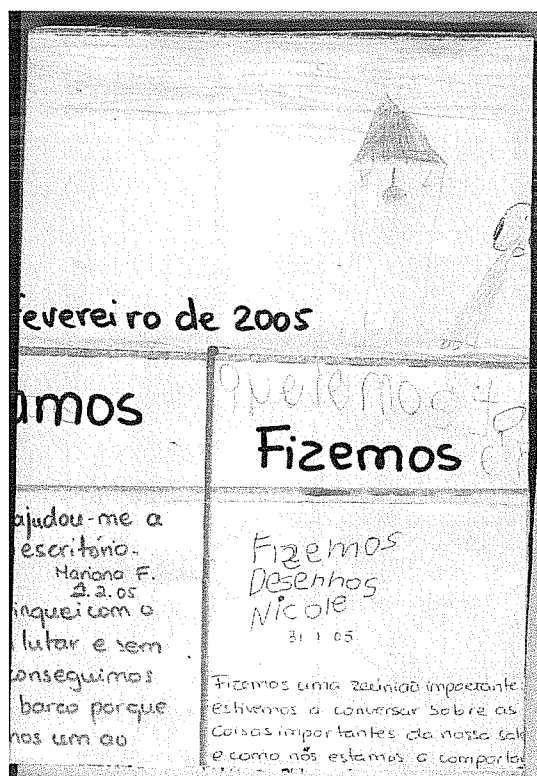 fevereiro de 2005
amos
ajudou-me a
escritório.
Mariana F.
2.2.05
inquei com o
lutar e sem
conseguimos
barco porque
nos um ao
queremos
Fizemos
Fizemos
Desenhos
Nicole
31 1 05
Fizemos uma reunião importante
estivemos a conversar sobre as
Coisas importantes da nossa sal
e como nós estamos a comportar